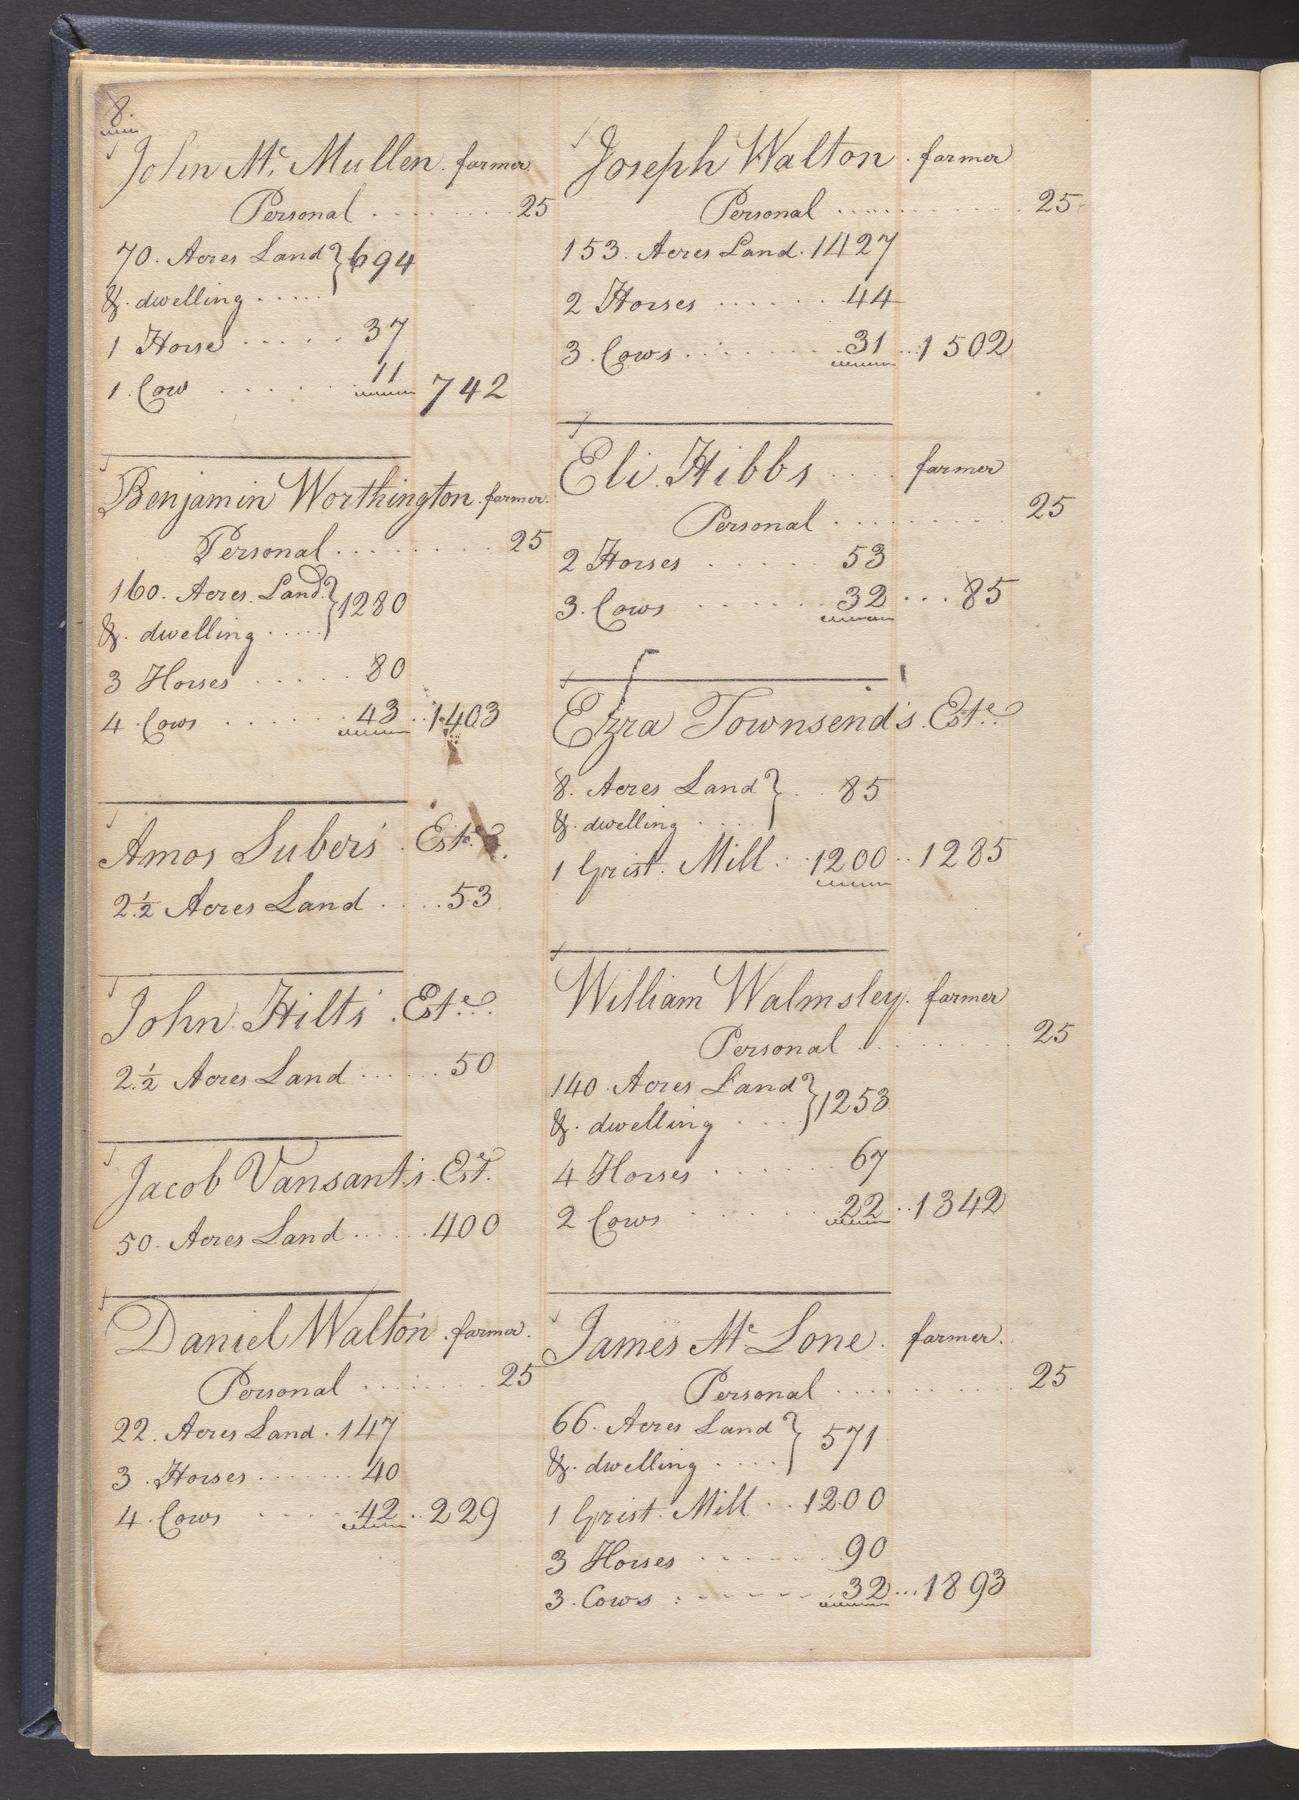 8.
John Mc. Mullen. farmer
Personal ......... 25
70. Acres Land } 694
&. dwelling .....
1 Horse ..... 37
1. Cow ...... 11 742
Benjamin Worthington. farmer.
Personal ........ 25
160. Acres. Land } 1280
&. dwelling .....
3 Horses ..... 80
4. Cows ...... 43 .. 1403
Amos Subers' . Este.
2.½ Acres Land ..... 53
John Hilts' . Este.
2.½ Acres Land ...... 50
Jacob Vansant's. Est.
50. Acres Land ...... 400
Daniel Walton. farmer.
Personal ....... 25
22. Acres Land. 147
3. Horses ...... 40
4. Cows ..... 42 .. 229
Joseph Walton. farmer
Personal .......... 25
153. Acres Land. 1427
2 Horses ...... 44
3. Cows ....... 31 .. 1502
Eli. Hibbs .... farmer
Personal ......... 25
2 Horses ...... 53
3. Cows ...... 32 ... 85
Ezra Townsend's. Este.
8. Acres Land } .. 85
&. dwelling ....
1 Grist. Mill .. 1200 .. 1285
William Walmsley. farmer
Personal ........ 25
140. Acres Land } 1253
&. dwelling ....
4 Horses ...... 67
2 Cows ...... 22 .. 1342
James Mc. Lone. farmer.
Personal .......... 25
66. Acres Land } 571
&. dwelling ....
1 Grist. Mill .. 1200
3 Horses ...... 90
3. Cows : - - - - - 32 ... 1893